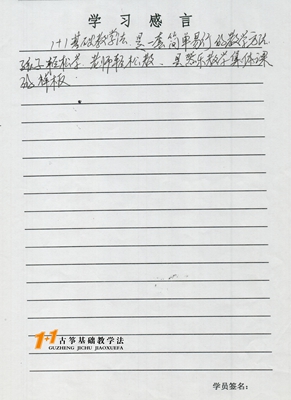 学习感言
1+1基础教学法 是一套简单易行的教学方法
孩子轻松学 老师轻松教、是器乐教学集体课
的样板
1+1古筝基础教学法
GUZHENG JICHU JIAOXUEFA
学员签名: